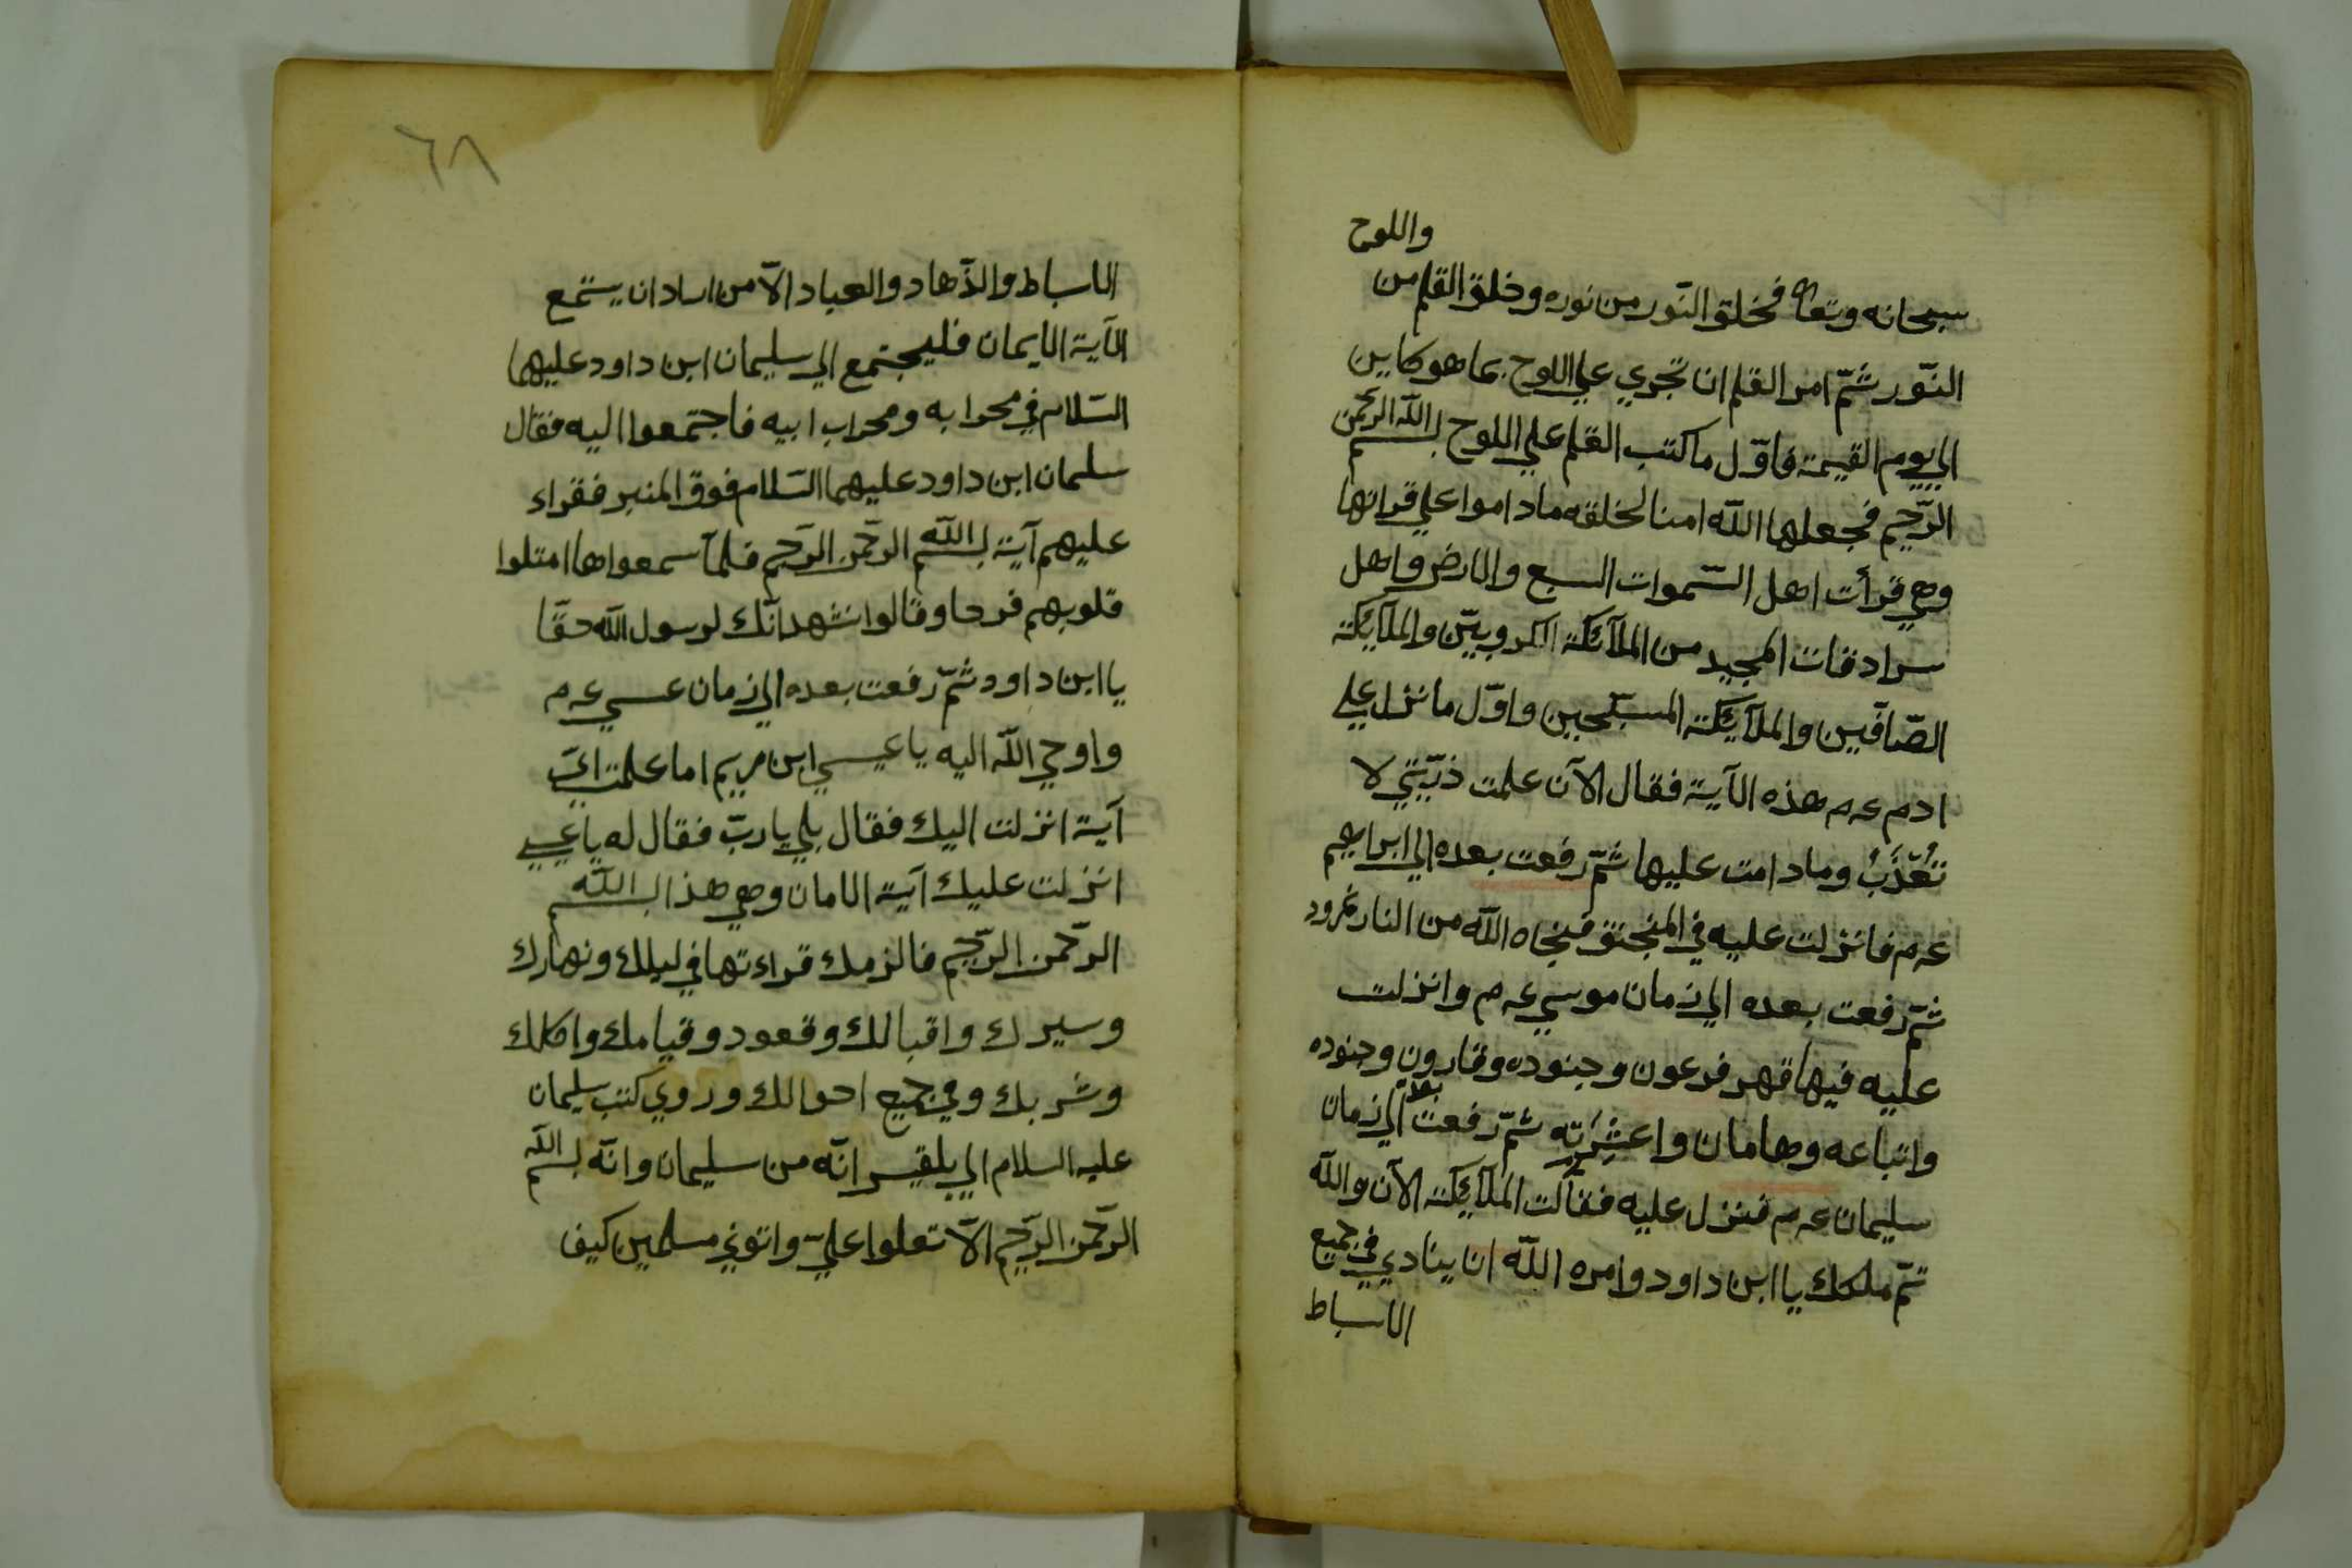 واللوح
سبحانه وتعا فخلق النّور من نوره وخلق القلم من
النّور ثمّ امر القلم ان تجري علي اللوح بما هو كاين
الي يوم القيمة فاوّل ما كتب القلم علي اللوح بسم الله الرحمن
الرّحيم فجعلها اللّه امنا لخلقه ما داموا علي قراتها
وهي قرأت اهل السّموات السبع والارض واهل
سرادقات المجيد من الملآئكة الكروبيّن والملآيكة
الصّافّين والملآئكة المسبّحين واوّل ما نزل علي
ادم عم هذه الآية فقال الآن علمت ذرّيّتي لا
تُعَذَّبُ وما دامت عليها ثمّ رفعت بعده الي ابراهيم
عم فانزلت عليه في المنجنق فنجاه اللّه من النار نمرود
ثمّ رفعت بعده الي زمان موسي عم وانزلت
عليه فيها قهر فرعون وجنوده وقارون وجنوده
واتباعه وهامان واعشرته ثمّ رفعت بعده الي زمان
سليمان عم فنزل عليه فقالت الملآئكة الآن واللّه
تمّ ملكك يا ابن داود وامره اللّه ان ينادي في جميع
الاسباط
٦٨
الاسباط والزّهاد والعباد الآ من اراد ان يستمع
الآية الايمان فليجتمع الي سليمان ابن داود عليهما
السّلام في محرابه ومحراب ابيه فاجتمعوا اليه فقال
سلمان ابن داود عليهما السّلام فوق المنبر فقراء
عليهم آية بسم اللّه الرحمن الرّحيم فلمّآ سمعواها امتلوا
قلوبهم فرحا وقالوا نشهد انّك لرسول اللّه حقّا
يا ابن داود ثمّ رفعت بعده الي زمان عسي عم
واوحي اللّه اليه يا عيسي ابن مريم اما علمت ايّ
آية انزلت اليك فقال بلي يا ربّ فقال له يا عيسي
انزلت عليك آية الامان وهي هذا بسم اللّه
الرّحمن الرّحيم فالزمك قراءتها في ليلك ونهارك
وسيرك واقبالك وقعود وقيامك واكلك
وشربك وفي جميع احوالك وروي كتب سليمان
عليه السلام الي بلقيس انّه من سليمان وانّه بسم اللّه
الرّحمن الرّحيم الّا تعلوا عليّ واتوني مسلمين كيف